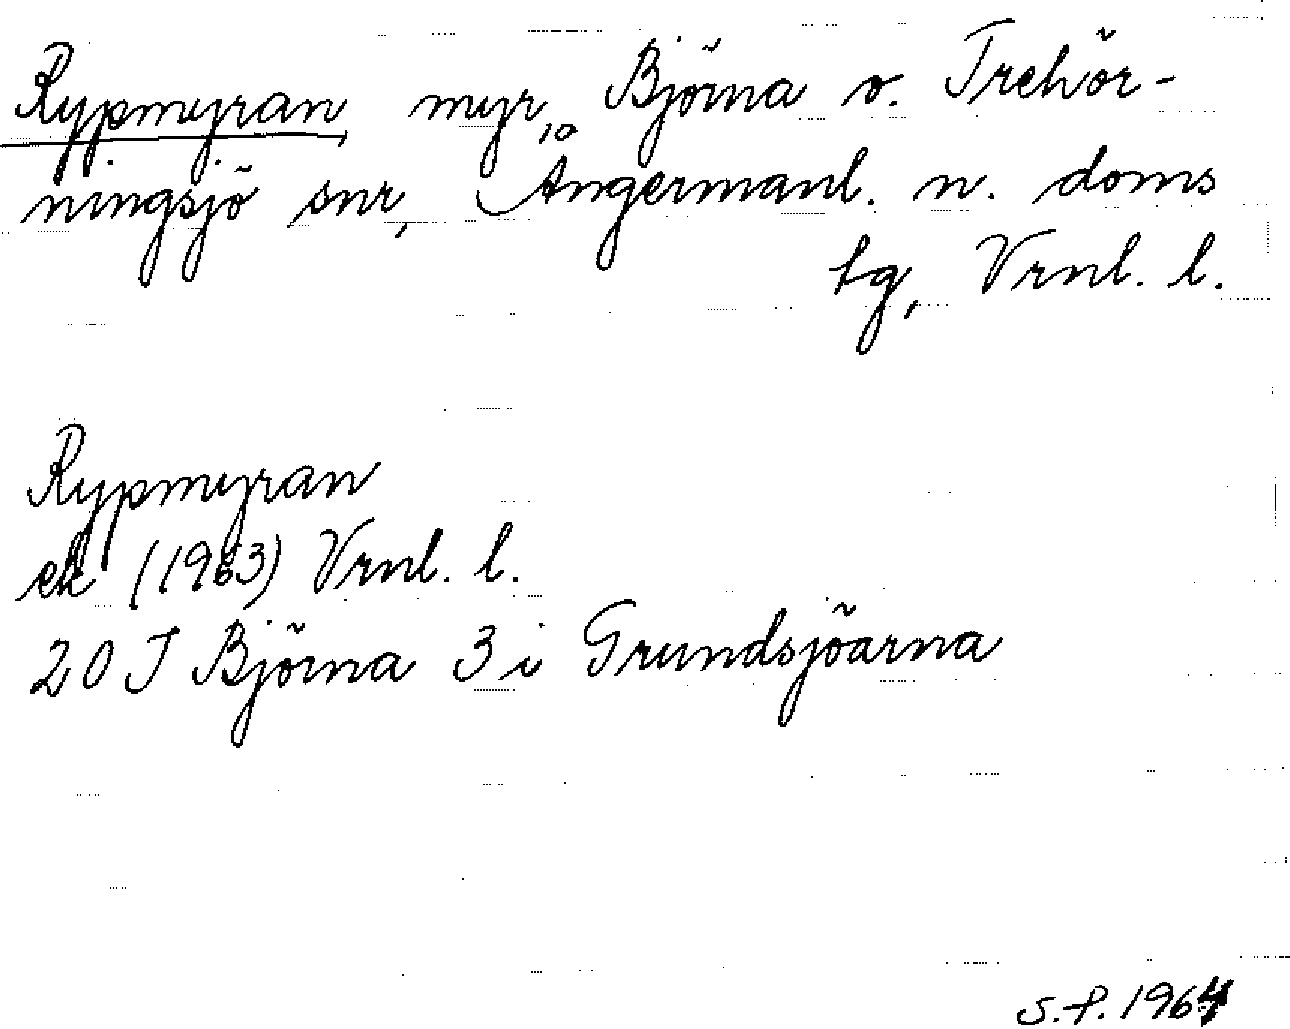 Rypmyran, myr, Björna o. Trehör-
ningsjö snr, Ångermanl. n. doms
lg, Vrnl. l.
Rypmyran
ek (1963) Vrnl. l.
20 J Björna 3 i Grundsjöarna
S.P. 1964